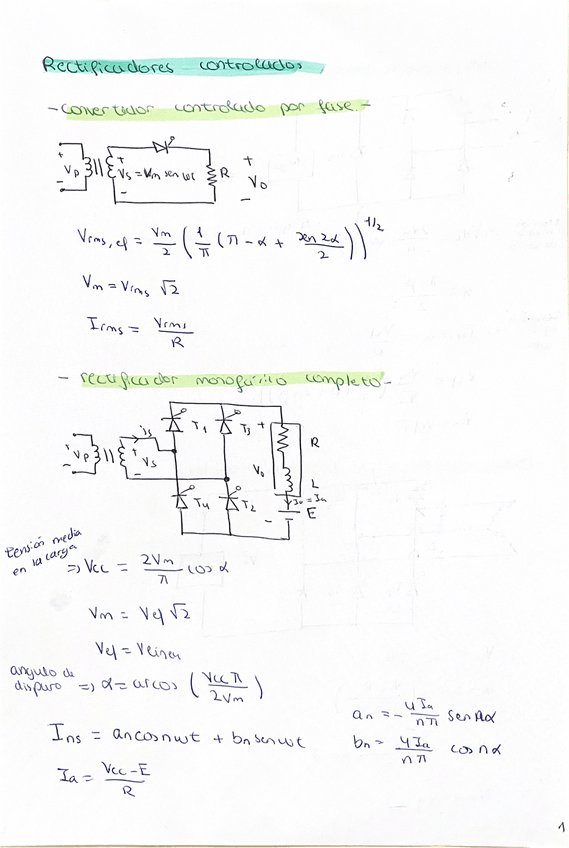 Rectificadores controlados
- convertidor controlado por fase.-
+ Vp - + Vs = Vm sen ωt - R + Vo -
Vrms,ef = Vm/2 (1/π (π - α + sen 2α/2))^1/2
Vm = Vrms √2
Irms = Vrms/R
- rectificador monofásico completo-
+ Vp - is + Vs - T1 T3 T4 T2 + Vo - R L Io = Ia E
tensión media
en la carga
=> Vcc = 2Vm/π cos α
Vm = Vef √2
Vef = Vlinea
angulo de
disparo => α = arcos (Vcc π/2Vm)
an = - 4Ia/nπ sen nα
Ins = an cos nωt + bn sen ωt
bn = 4Ia/nπ cos nα
Ia = Vcc - E/R
1